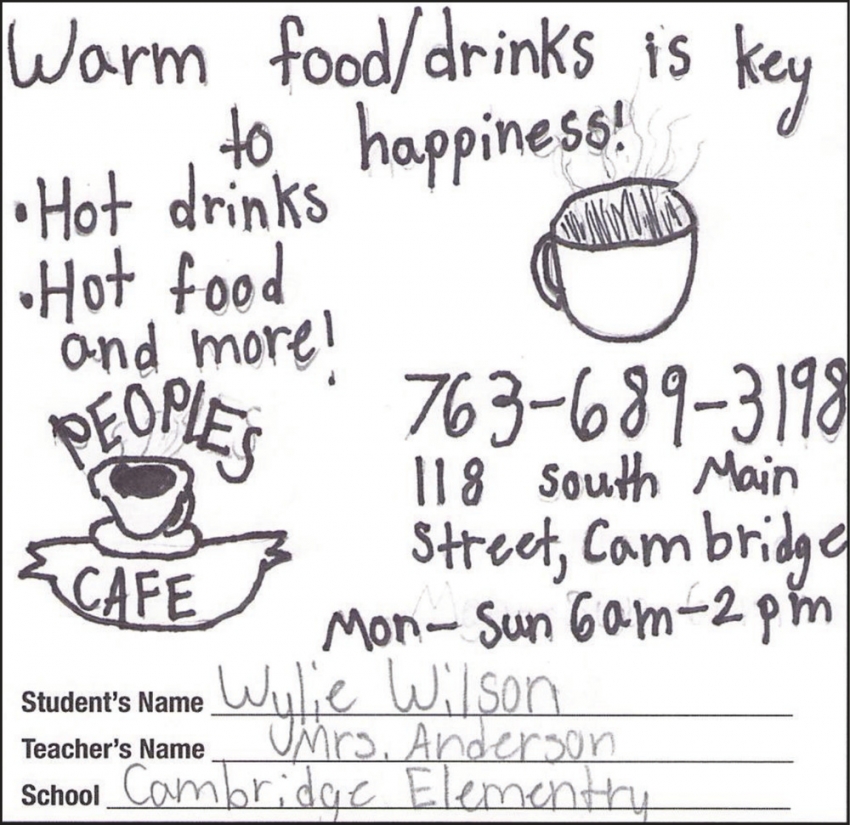 Warm food/drinks is key
to happiness!
•Hot drinks
•Hot food
and more!
PEOPLES
CAFE
763-689-3198
118 south Main
Street, Cambridge
Mon-Sun 6am-2pm
Student's Name Wylie Wilson
Teacher's Name Mrs. Anderson
School Cambridge Elementry